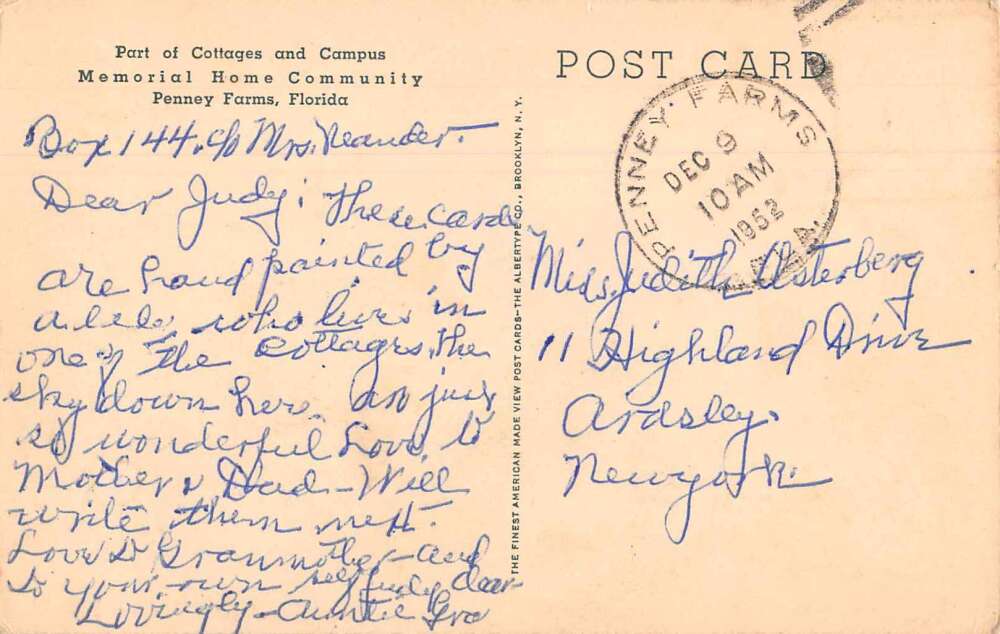 Part of Cottages and Campus
Memorial Home Community
Penney Farms, Florida
Box 144. c/o Mrs. Neander.
Dear Judy: These cards
are hand painted by
a lady who lives in
one of the cottages. the
sky down here are just
so wonderful Love to
Mother & Dad - Will
write them next.
Love to Granmother - and
to your own self Judy dear
Lovingly - Auntie
THE FINEST AMERICAN MADE VIEW POST CARDS—THE ALBERTYPE CO., BROOKLYN, N. Y.
POST CARD
PENNEY FARMS
DEC 9
10 AM
1952
FLA.
Miss Judith Osterberg
11 Highland Drive
Ardsley.
New York.